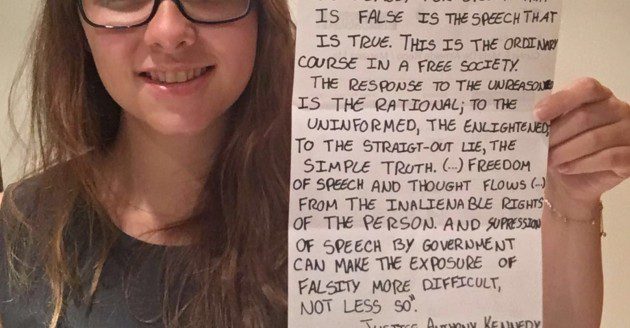 IS FALSE IS THE SPEECH THAT
IS TRUE. THIS IS THE ORDINARY
COURSE IN A FREE SOCIETY.
THE RESPONSE TO THE UNREASONED
IS THE RATIONAL; TO THE
UNINFORMED, THE ENLIGHTENED;
TO THE STRAIGT-OUT LIE, THE
SIMPLE TRUTH. (...) FREEDOM
OF SPEECH AND THOUGHT FLOWS (...)
FROM THE INALIENABLE RIGHTS
OF THE PERSON. AND SUPRESSION
OF SPEECH BY GOVERNMENT
CAN MAKE THE EXPOSURE OF
FALSITY MORE DIFFICULT,
NOT LESS SO".
JUSTICE ANTHONY KENNEDY